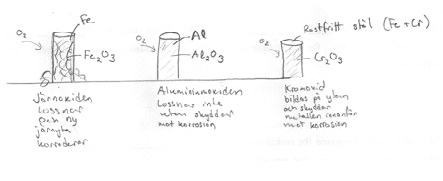 Fe
O₂
Fe₂O₃
Järnoxiden
lossnar
och ny
järnyta
korroderar
Al
O₂
Al₂O₃
Aluminiumoxiden
lossnar inte
utan skyddar
mot korrosion
Rostfritt stål (Fe + Cr)
O₂
Cr₂O₃
Kromoxid
bildas på ytan
och skyddar
metallen
mot korrosion